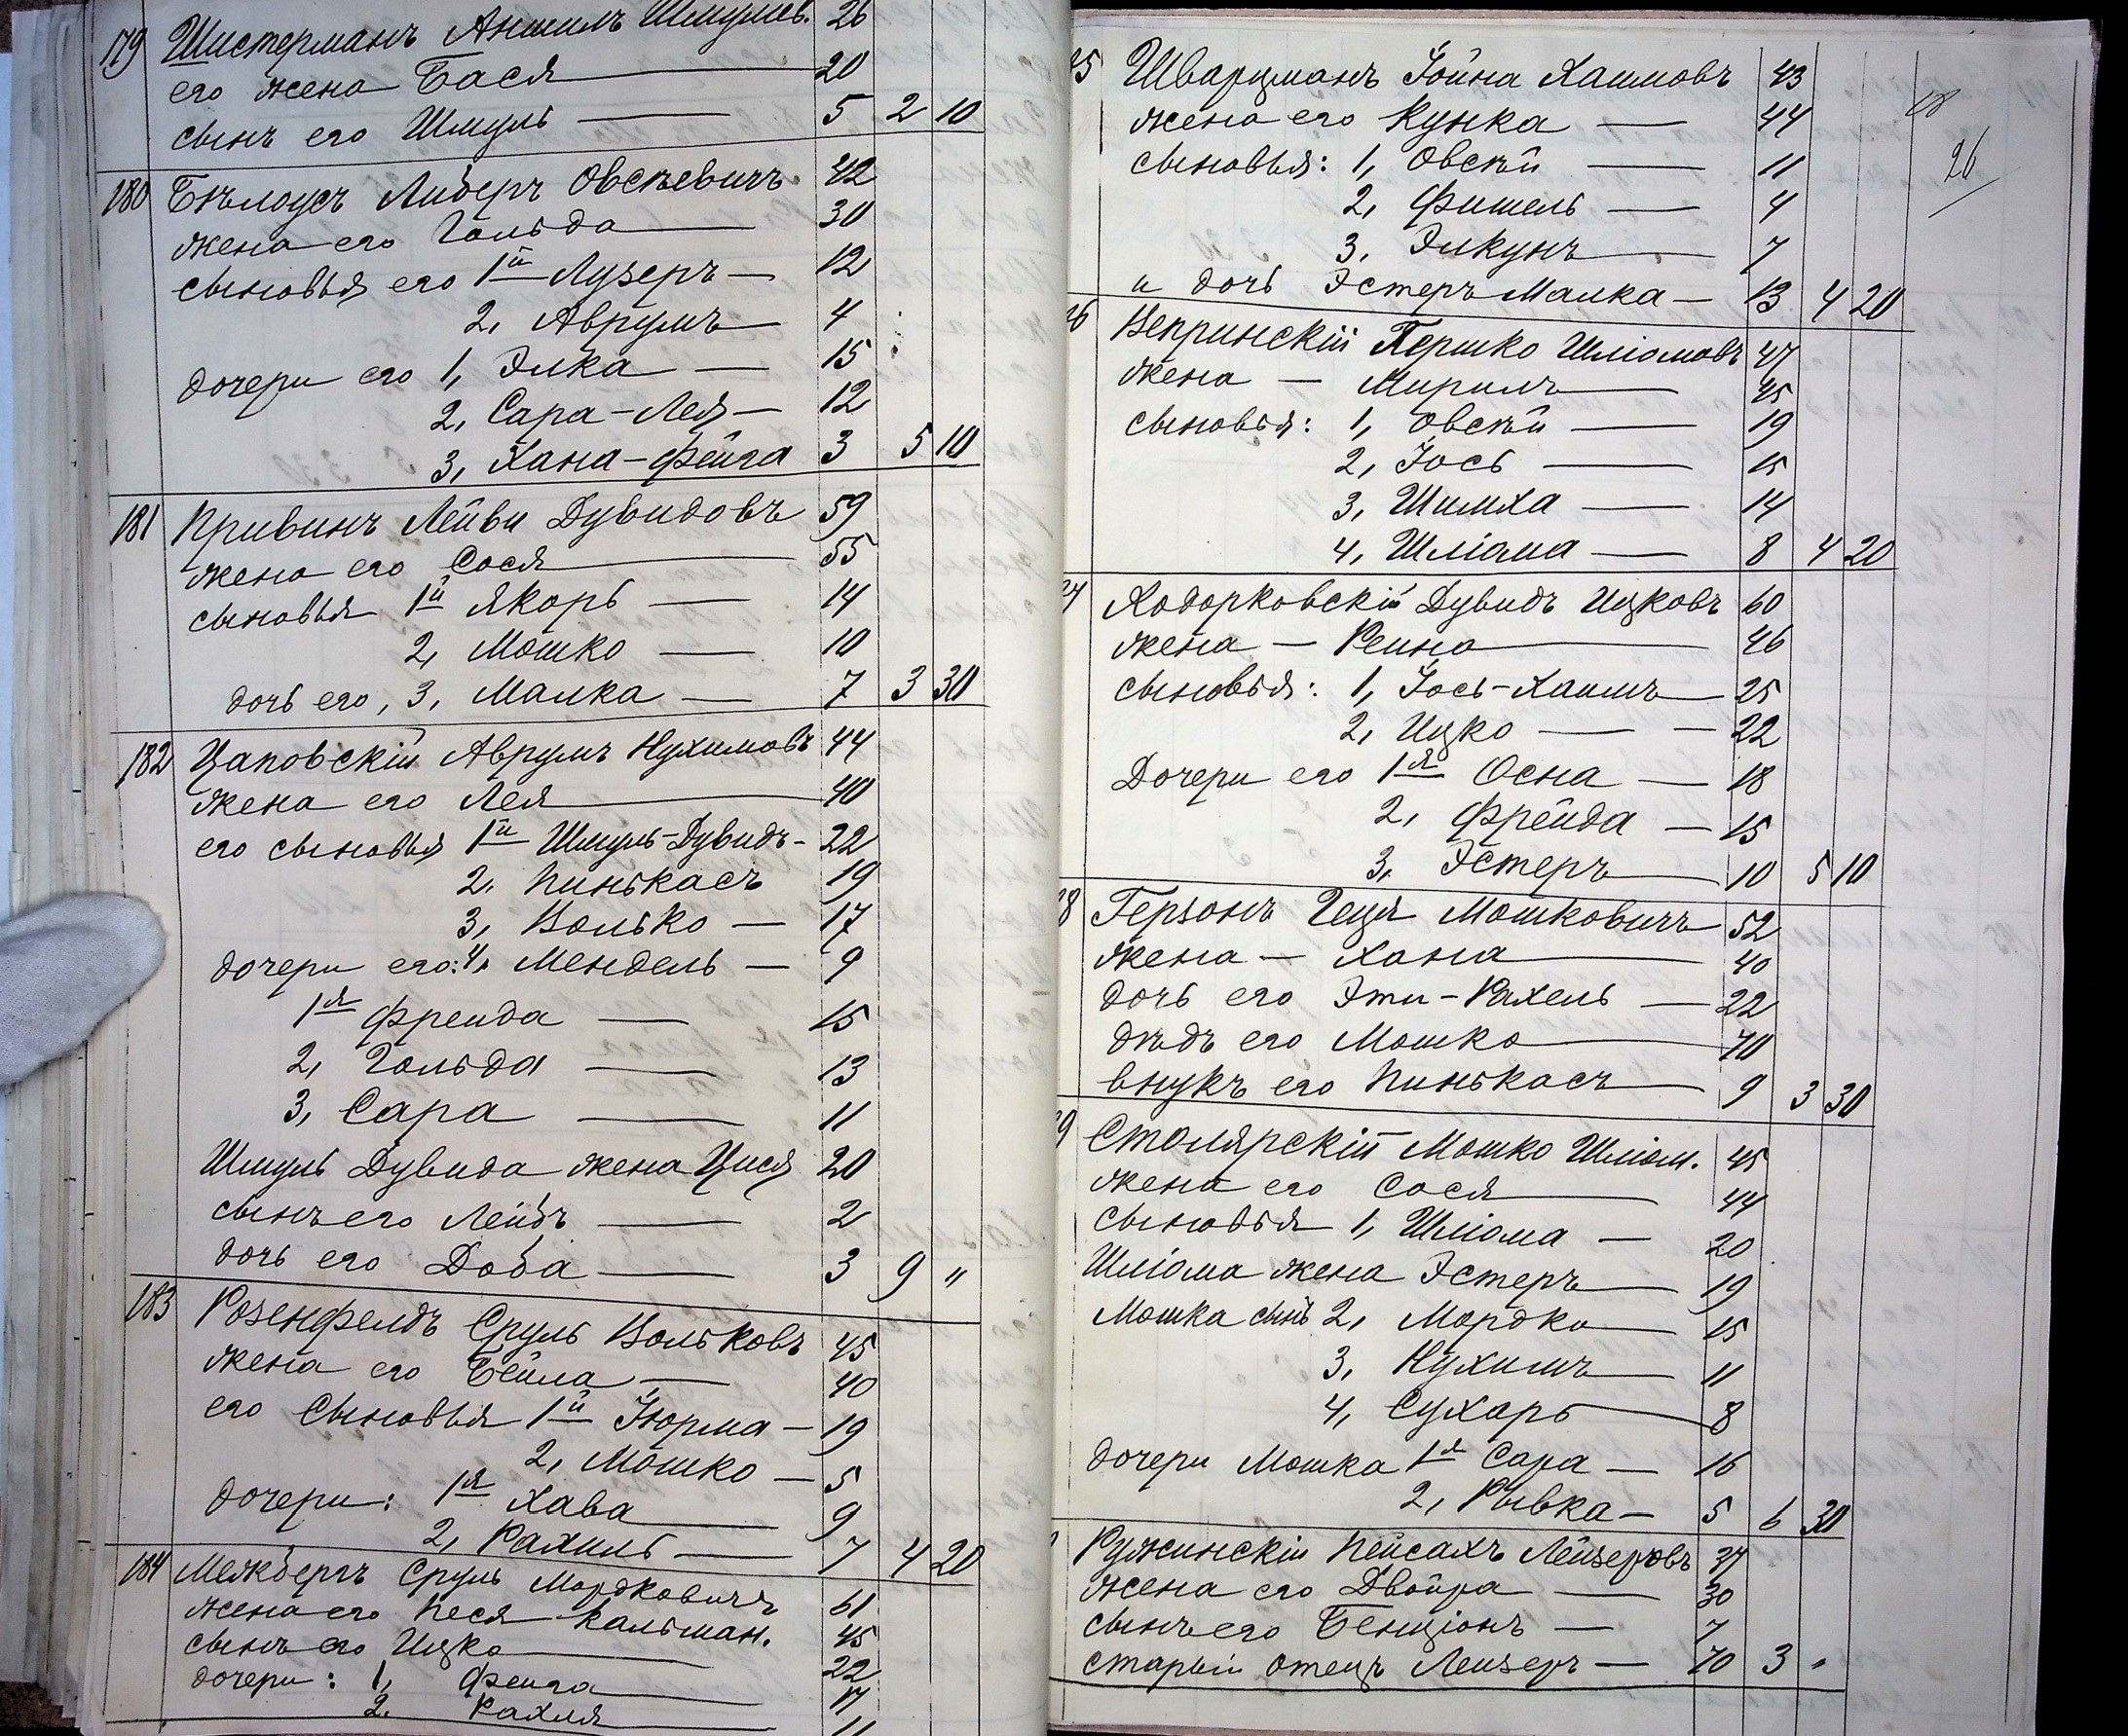 179 Шистерманъ Аншилъ Шмулев. 26
его жена Бася 20
сынъ его Шмуль 5 2 10
180 Бѣлоусъ Либеръ Овсѣевичъ 42
жена его Гольда 30
сыновья его 1й Лузеръ 12
2, Аврумъ 4
дочери его 1, Элка 15
2, Сара-Лея 12
3, Хана-Фейга 3 5 10
181 Кривинъ Лейви Дувидовъ 59
жена его Сося 55
сыновья 1й Якоръ 14
2, Мошко 10
дочь его, 3, Малка 7 3 30
182 Цаповскій Аврумъ Нухимовъ 44
жена его Лея 40
его сыновья 1й Шмуль-Дувидъ 22
2, Пинькасъ 19
3, Волько 17
дочери его: 4, Мендель 9
1я Фреида 15
2, Гольда 13
3, Сара 11
Шмуль Дувида жена Цися 20
сынъ его Лейбъ 2
дочь его Доба 3 9 "
183 Розенфелдъ Сруль Вольковъ 45
жена его Бейла 40
его сыновья 1й Іюрма 19
2, Мошко 5
дочери: 1я Хава 9
2, Рахиль 7 4 20
184 Межбергъ Сруль Мордковичъ 61
жена его Песя Кальман. 45
сынъ его Ицко 22
дочери: 1, Феига 17
2, Рахля 11
18
26
25 Шварцманъ Іойна Хаимовъ 43
жена его Кунка 44
сыновья: 1, Овсѣй 11
2, Фишель 4
3, Элкунъ 7
и дочь Эстеръ Малка 13 4 20
26 Вепринскій Гершко Шліомовъ 47
жена Миримъ 45
сыновья: 1, Овсѣй 19
2, Іось 15
3, Шимха 14
4, Шліома 8 4 20
27 Ходорковскій Дувидъ Ицковъ 60
жена Реина 46
сыновья: 1, Іось-Хаимъ 25
2, Ицко 22
Дочери его 1я Осна 18
2, Фрейда 15
3, Эстеръ 10 5 10
28 Герзонъ Геця Мошковичъ 52
жена Хана 40
дочь его Эти-Рахель 22
дѣдъ его Мошко 70
внукъ его Пинькасъ 9 3 30
29 Столярскій Мошко Шліом. 45
жена его Сося 44
сыновья 1, Шліома 20
Шліома жена Эстеръ 19
Мошка сынъ 2, Мордко 15
3, Нухимъ 11
4, Сухоръ 8
дочери Мошка 1я Сара 16
2, Рывка 5 6 30
Ружинскій Пейсахъ Лейзеровъ 37
жена его Двойра 30
сынъ его Бенціонъ 7
старый отецъ Лейзеръ 70 3 "